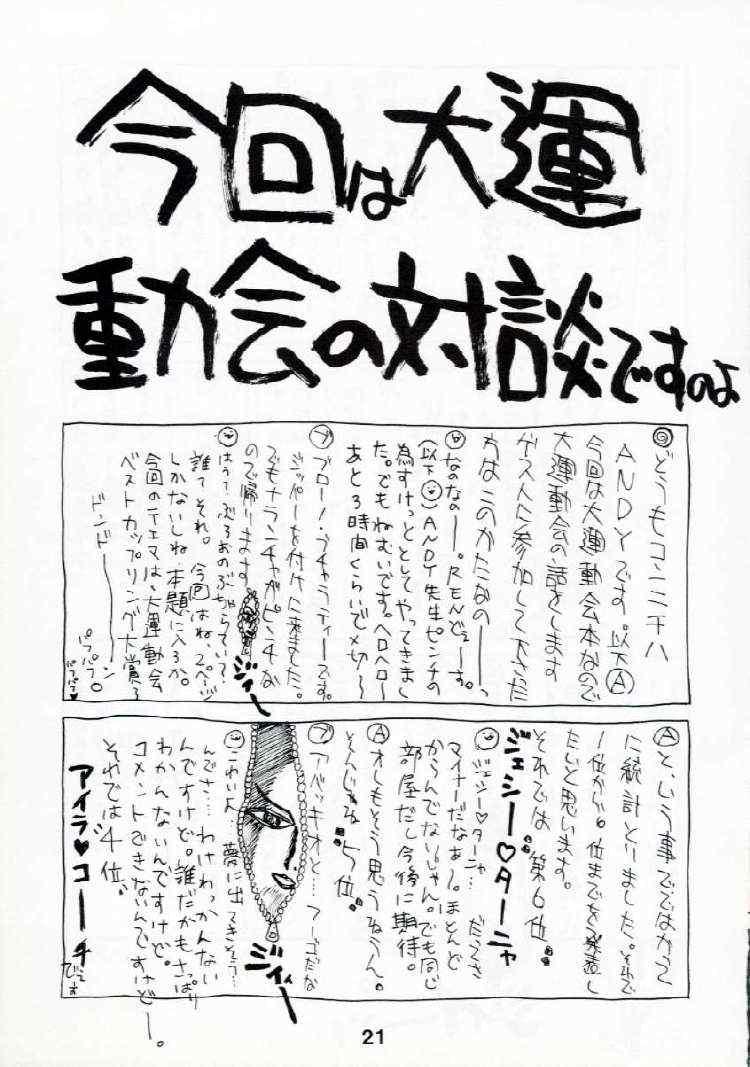 今回は大運
動会の対談ですのよ
どうもコンニチハ
ANDYです。以下Ⓐ
今回は大運動会本なので
大運動会の話をします
ゲストに参加して下さった
方はこのかたなのーーっ
なのなのー。RENどぇーす。
ANDY先生ピンチの
為すけっととしてやってきまし
た。でもねむいです。ヘロヘロ〜
あと3時間くらいで〆切〜
ブロー!ブチャラティーズです。
ジッパーを付けに来ました。
でもナランチャがピンチな
ので帰ります。
ジィー
はぅぅ ぶろおのぶちゃらてい?
誰てそれ。 今回はね、2ページ
しかないしね 本題に入ろか。
今回のテェマは、大運動会
ベストカップリング大賞〜
ドンドーーーン
パフパフ〇
パフパフ♥
Ⓐという事でではがって
に統計とりました。それで
1位から6位までを発表し
たいと思います。
それでは 第6位
ジェシー♡ターニャ
ジェシー♡ターニャ…
マイナーだなぁー。ほとんど
からんでないじゃん。でも同じ
部屋だし今後に期待。
Ⓐオレもそう思うねうん。
そんじゃね 5位
アバッキオと…フーゴだな
ジィィー
こわいよ 夢に出てきそう…
んでさ… わけわっかんない
んですけど。誰だがもさっぱり
わかんないんですけど。
コメントできないんですけどー。
それでは 4位、
アイラ♥コーチ
でぇす
21